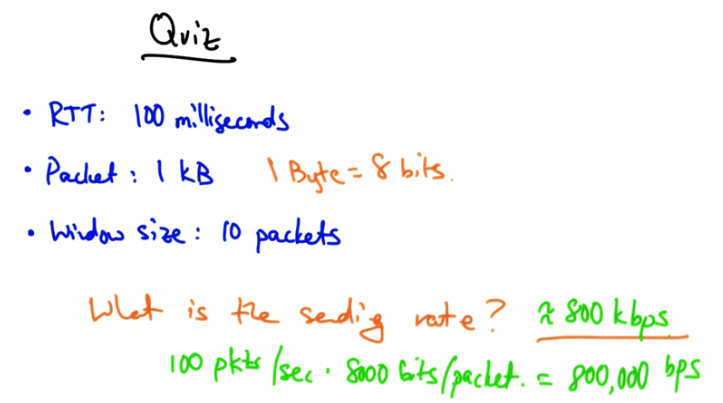 Quiz
• RTT: 100 milliseconds
• Packet: 1 kB 1 Byte = 8 bits.
• Window size: 10 packets
What is the sending rate? ≈ 800 kbps
100 pkts/sec · 8000 bits/packet. = 800,000 bps